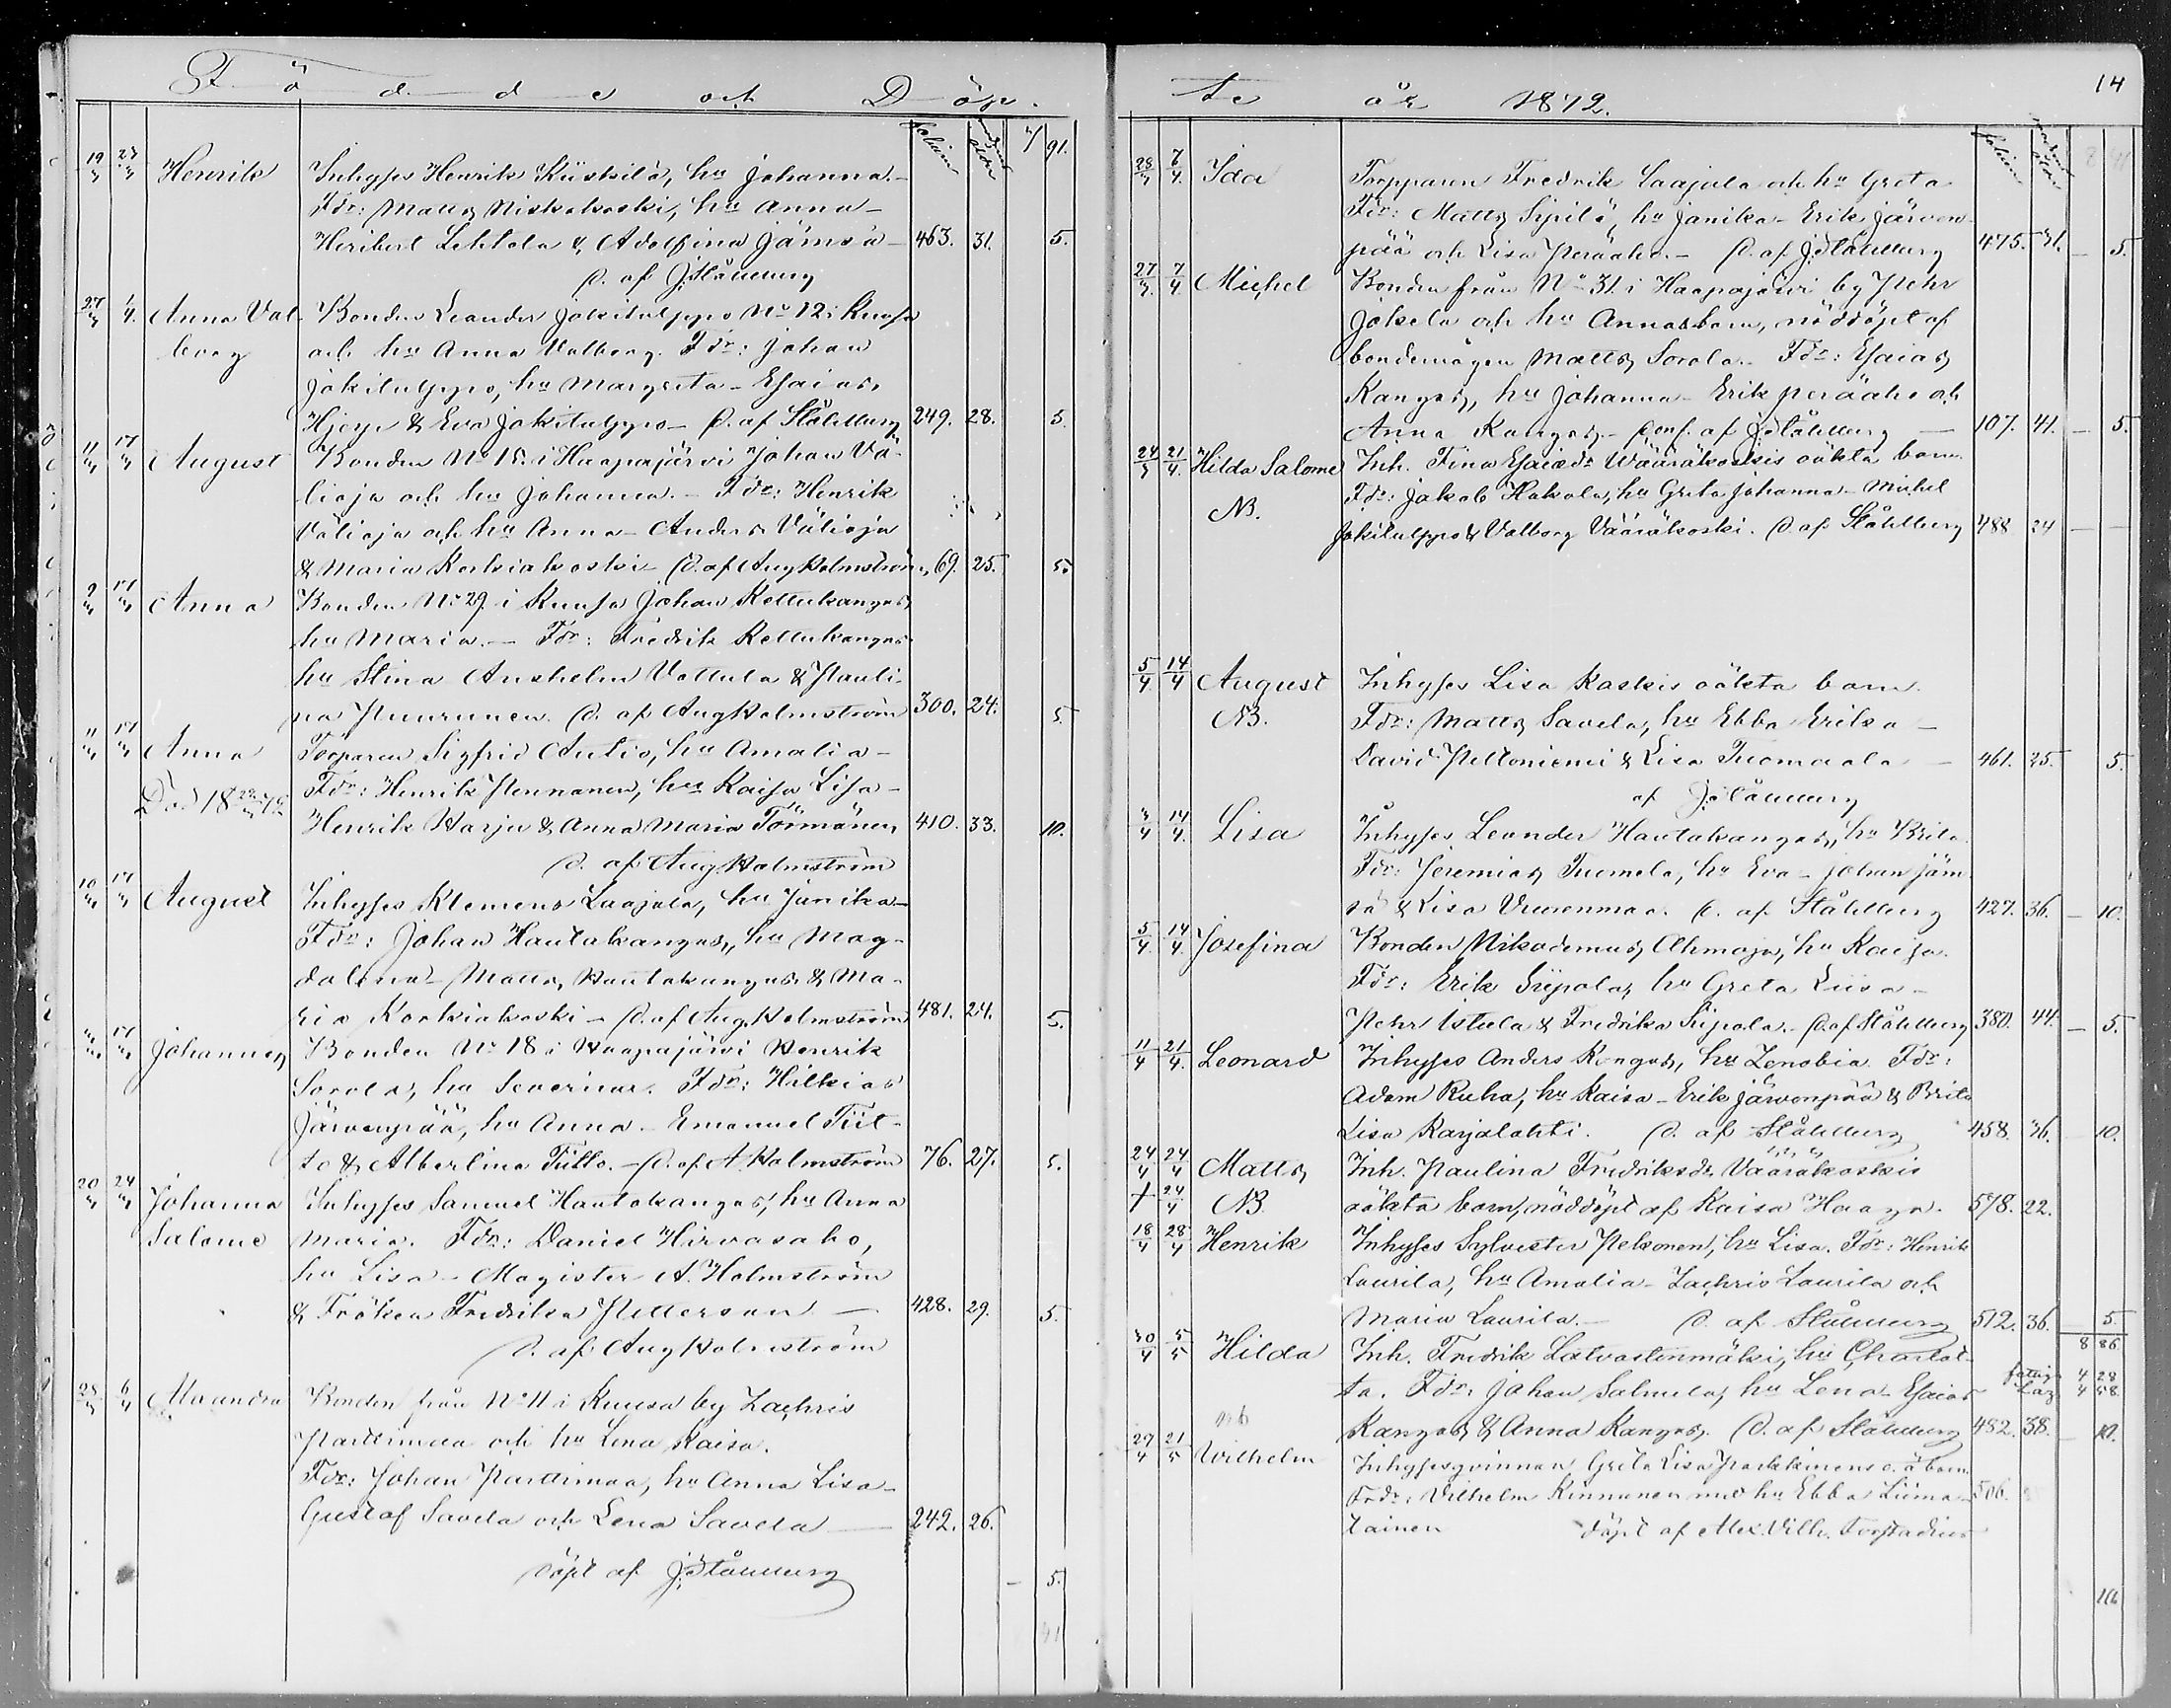 Födde och Döp-
folium
7 91.
19/3 23/3 Henrik Inhyses Henrik Kiiskilä, hu Johanna.
Fdr: Matts Niskakoski, hu Anna -
Heribert Lehtola & Adolfina Jämsä - 463. 31. 5.
D. af J. Ståhlberg
27/3 1/4. Anna Val- Bonden Leander Jokitulppo No 12 i Kuusa
borg och hu Anna Valborg. Fdr: Johan
Jokitulppo, hu Margreta - Esaias
& Eva Jokitulppo - D. af Ståhlberg 249. 28. 5.
11/3 17/3 August Bonden No 15. i Haapajärvi Johan Vä-
lioja och hu Johanna. - Fdr: Henrik
Välioja och hu Anna - Anders Välioja
& Maria Korkiakoski - D. af Aug Holmström 69. 25. 5.
9/3 17/3 Anna Bonden No 29 i Kuusa Johan Kettukangas,
hu Maria. - Fdr: Fredrik Kettukangas
hu Stina Anshelm Vattula & Pauli-
na Puurunen. D. af Aug Holmström 300. 24. 5.
11/3 17/3 Anna Torparen Sigfrid Autio, hu Amalia -
Död 18 Fdr: Henrik Pennanen, hu Kaisa Lisa -
Henrik Harju & Anna Maria Törmänen 410. 33. 10.
D. af Aug. Holmström
10/3 17/3 August Inhyses Klemens Laajala, hu Janika -
Fdr: Johan Hautakangas, hu Mag-
dalena - Matts Hautakangas & Ma-
ria Korkiakoski - D. af Aug. Holmström 481. 24. 5.
17/3 Johannes Bonden No 18 i Haapajärvi Henrik
Sorola, hu Severina. Fdr: Hilkias
Järvenpää, hu Anna - Emanuel Tiit-
to & Albertina Tiitto. - D. af A. Holmström 76. 27. 5.
20/3 24/3 Johanna Inhyses Samuel Hautakangas, hu Anna
Salome Maria. Fdr: Daniel Hirvasaho,
hu Lisa - Magister A. Holmström
& Fröken Fredrika Petterson - 428. 29. 5.
D. af Aug Holmström
28/3 6/4 Maanda Bonden från No 11 i Kuusa by Zachris
Parttimaa och hu Lena Kaisa.
Fdr: Johan Parttimaa, hu Anna Lisa -
Gustaf Savela och Lena Savela - 242. 26.
döpt af J. Ståhlberg - 5.
41
te år 1872. 14
folium
28/3 7/4. Ida Torpparen Fredrik Laajala och hu Greta
Fdr: Matts Sipilä, hu Janika - Erik Järven-
pää och Lisa Peräaho. - D. af J. Ståhlberg 475. 31. - 5.
27/3. 7/4. Michel Bonden från No 31 i Haapajärvi by Pehr
Jokela och hu Annas barn, nöddöpt af
bondemågen Matts Sorola. Fdr: Esaias
Kangas, hu Johanna - Erik Peräaho och
Anna Kangas. - Conf. af J. Ståhlberg - 107. 41. - 5.
24/3 21/4. Hilda Salome Inh. Fina Esaiædr Wääräkoskis oäkta barn.
NB. Fdr: Jakob Hakola, hu Greta Johanna - Michel
Jokitulppo & Valborg Vääräkoski. D. af Ståhlberg 488 24 - -
5/4 14/4 August Inhyses Lisa Kaskis oäkta barn.
NB. Fdr: Matts Savela, hu Ebba Erika -
David Peltoniemi & Lisa Tuomaala - 461. 25. 5.
af J. Ståhlberg
3/4 14/4. Lisa Inhyses Leander Hautakangas, hu Brita
Fdr: Jeremias Tuomela, hu Eva - Johan Jäm-
sä & Lisa Vuorenmaa. D. af Ståhlberg 427. 36. - 10.
5/4. 14/4. Josefina Bonden Nikodemus Ahmaja, hu Kaisa.
Fdr: Erik Siipola, hu Greta Liisa -
Pehr Astala & Fredrika Siipola. - D. af Ståhlberg 380. 44. - 5.
11/4 21/4. Leonard Inhyses Anders Kangas, hu Zenobia. Fdr:
Adam Ruha, hu Kaisa - Erik Järvenpää & Brita
Lisa Karjalahti. D. af Ståhlberg 458. 36. 10.
24/4 24/4 Matts Inh. Paulina Fredriksdr Vääräkoskis
+ 24/4 NB. oäkta barn, nöddöpt af Kaisa Haapa. 578. 22.
18/4 28/4 Henrik Inhyses Sylvester Pekonen, hu Lisa. Fdr: Henrik
Laurila, hu Amalia - Zachris Laurila och
Maria Laurila. - D. af Ståhlberg 512. 36. 5.
8 86
30/4 5/5 Hilda Inh. Fredrik Latvastenmäki, hu Charlot-
ta. Fdr: Johan Salmela, hu Lena - Esaias fattig 4 28
4 58.
Kangas & Anna Kangas. D. af Ståhlberg 482. 38. - 10.
29/4 21/5 Wilhelm Inhysesqvinnan Greta Lisa Parkkinens o. ä. barn.
Fdr: Vilhelm Kinnunen med hu Ebba Liima- 506.
tainen döpt af Alex. Vilh. Forstadius